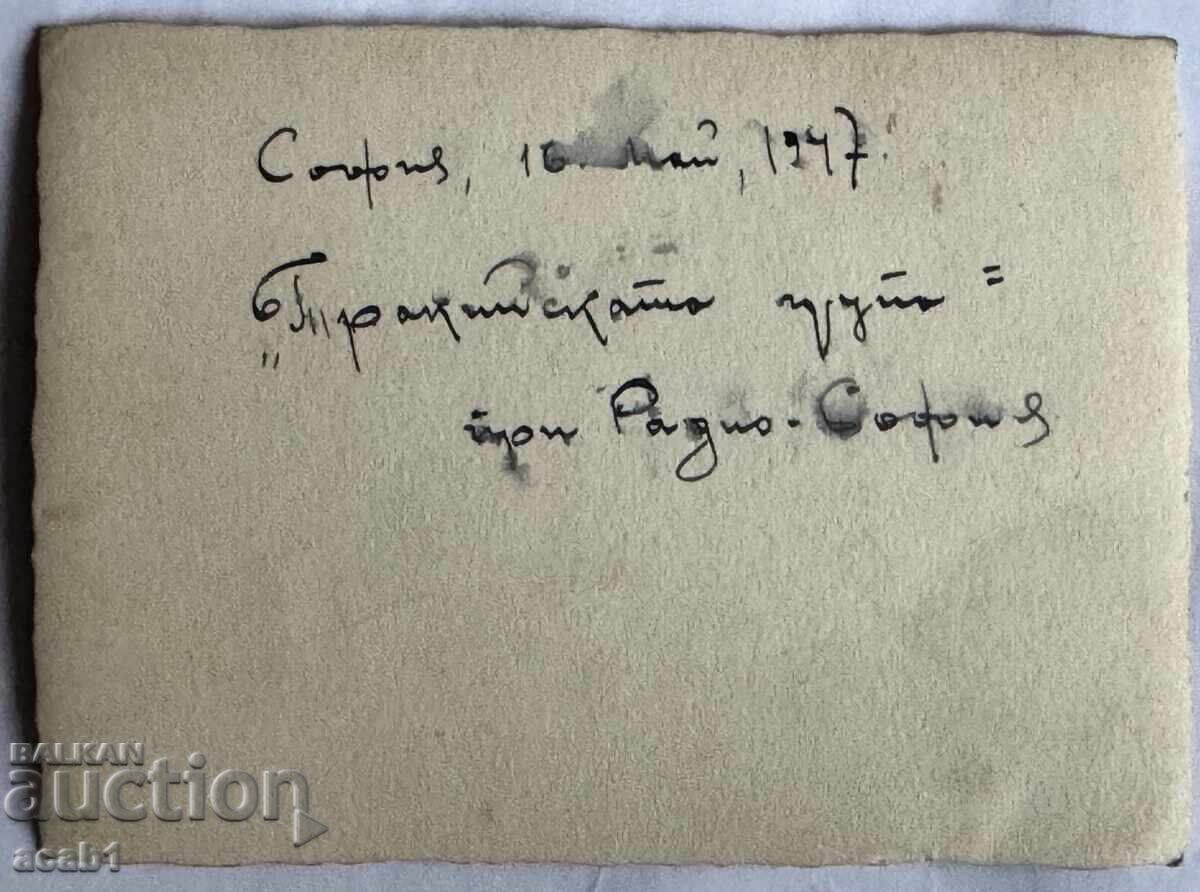 София, 16 май, 1947.
„Тракийската група"
при Радио-София
BALKAN
auction
acab1